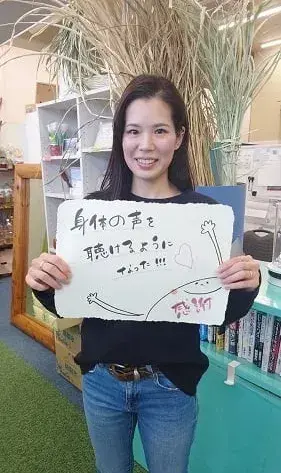 身体の声を
聴けるように
なった!!!
感謝